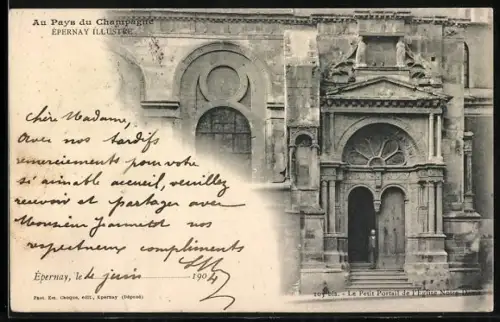 Au Pays du Champagne
ÉPERNAY ILLUSTRÉ
Chère Madame,
Avec nos tardifs
remerciements pour votre
si aimable accueil, veuillez
recevoir et partager avec
Monsieur Jeannetot nos
respectueux compliments
Épernay, le juin 1904
bis. - Le Petit Portail de l'Église Notre-Dame
Phot. Em. Choque, edit., Epernay (Déposé)